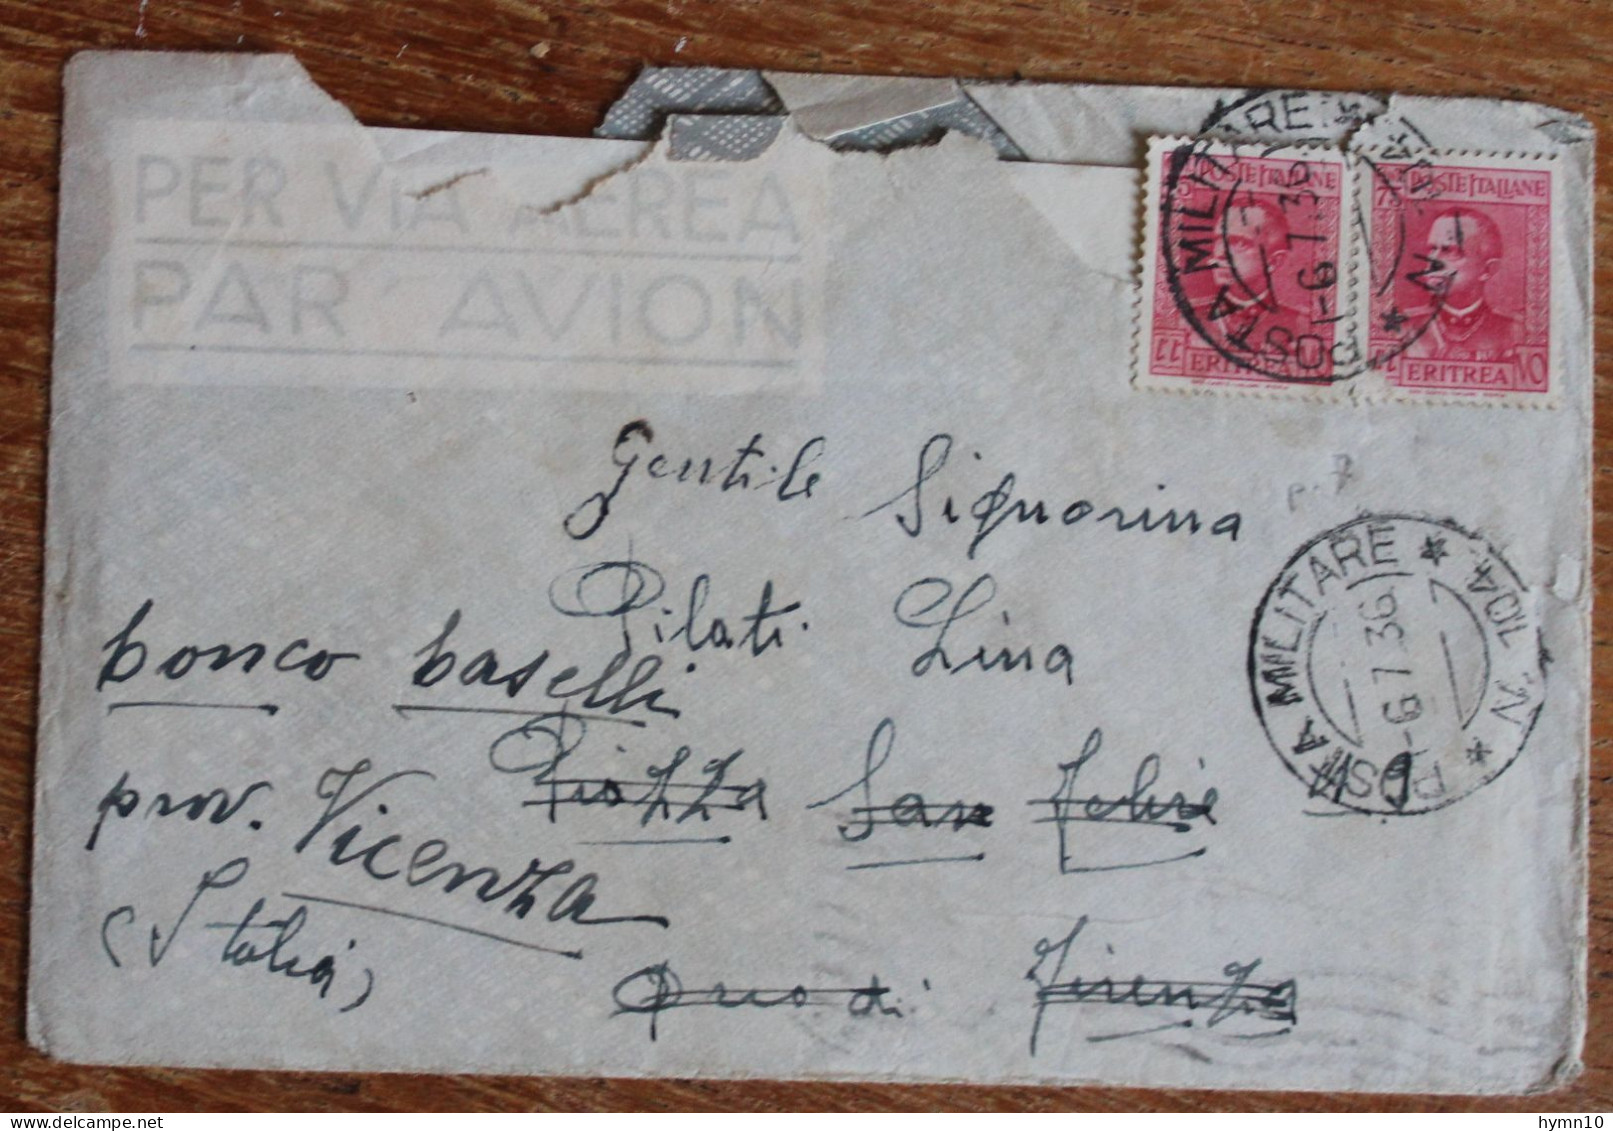 PER VIA AEREA
PAR AVION
POSTE ITALIANE
POSTE ITALIANE
ERITREA
ERITREA
POSTA MILITARE
-6.7.36
Gentile Signorina
Pilati Lina
conco caselli
Piazza San Felice
prov. Vicenza
(Italia)
di Firenze
POSTA MILITARE * N. 10A *
-6.7.36
hymn10